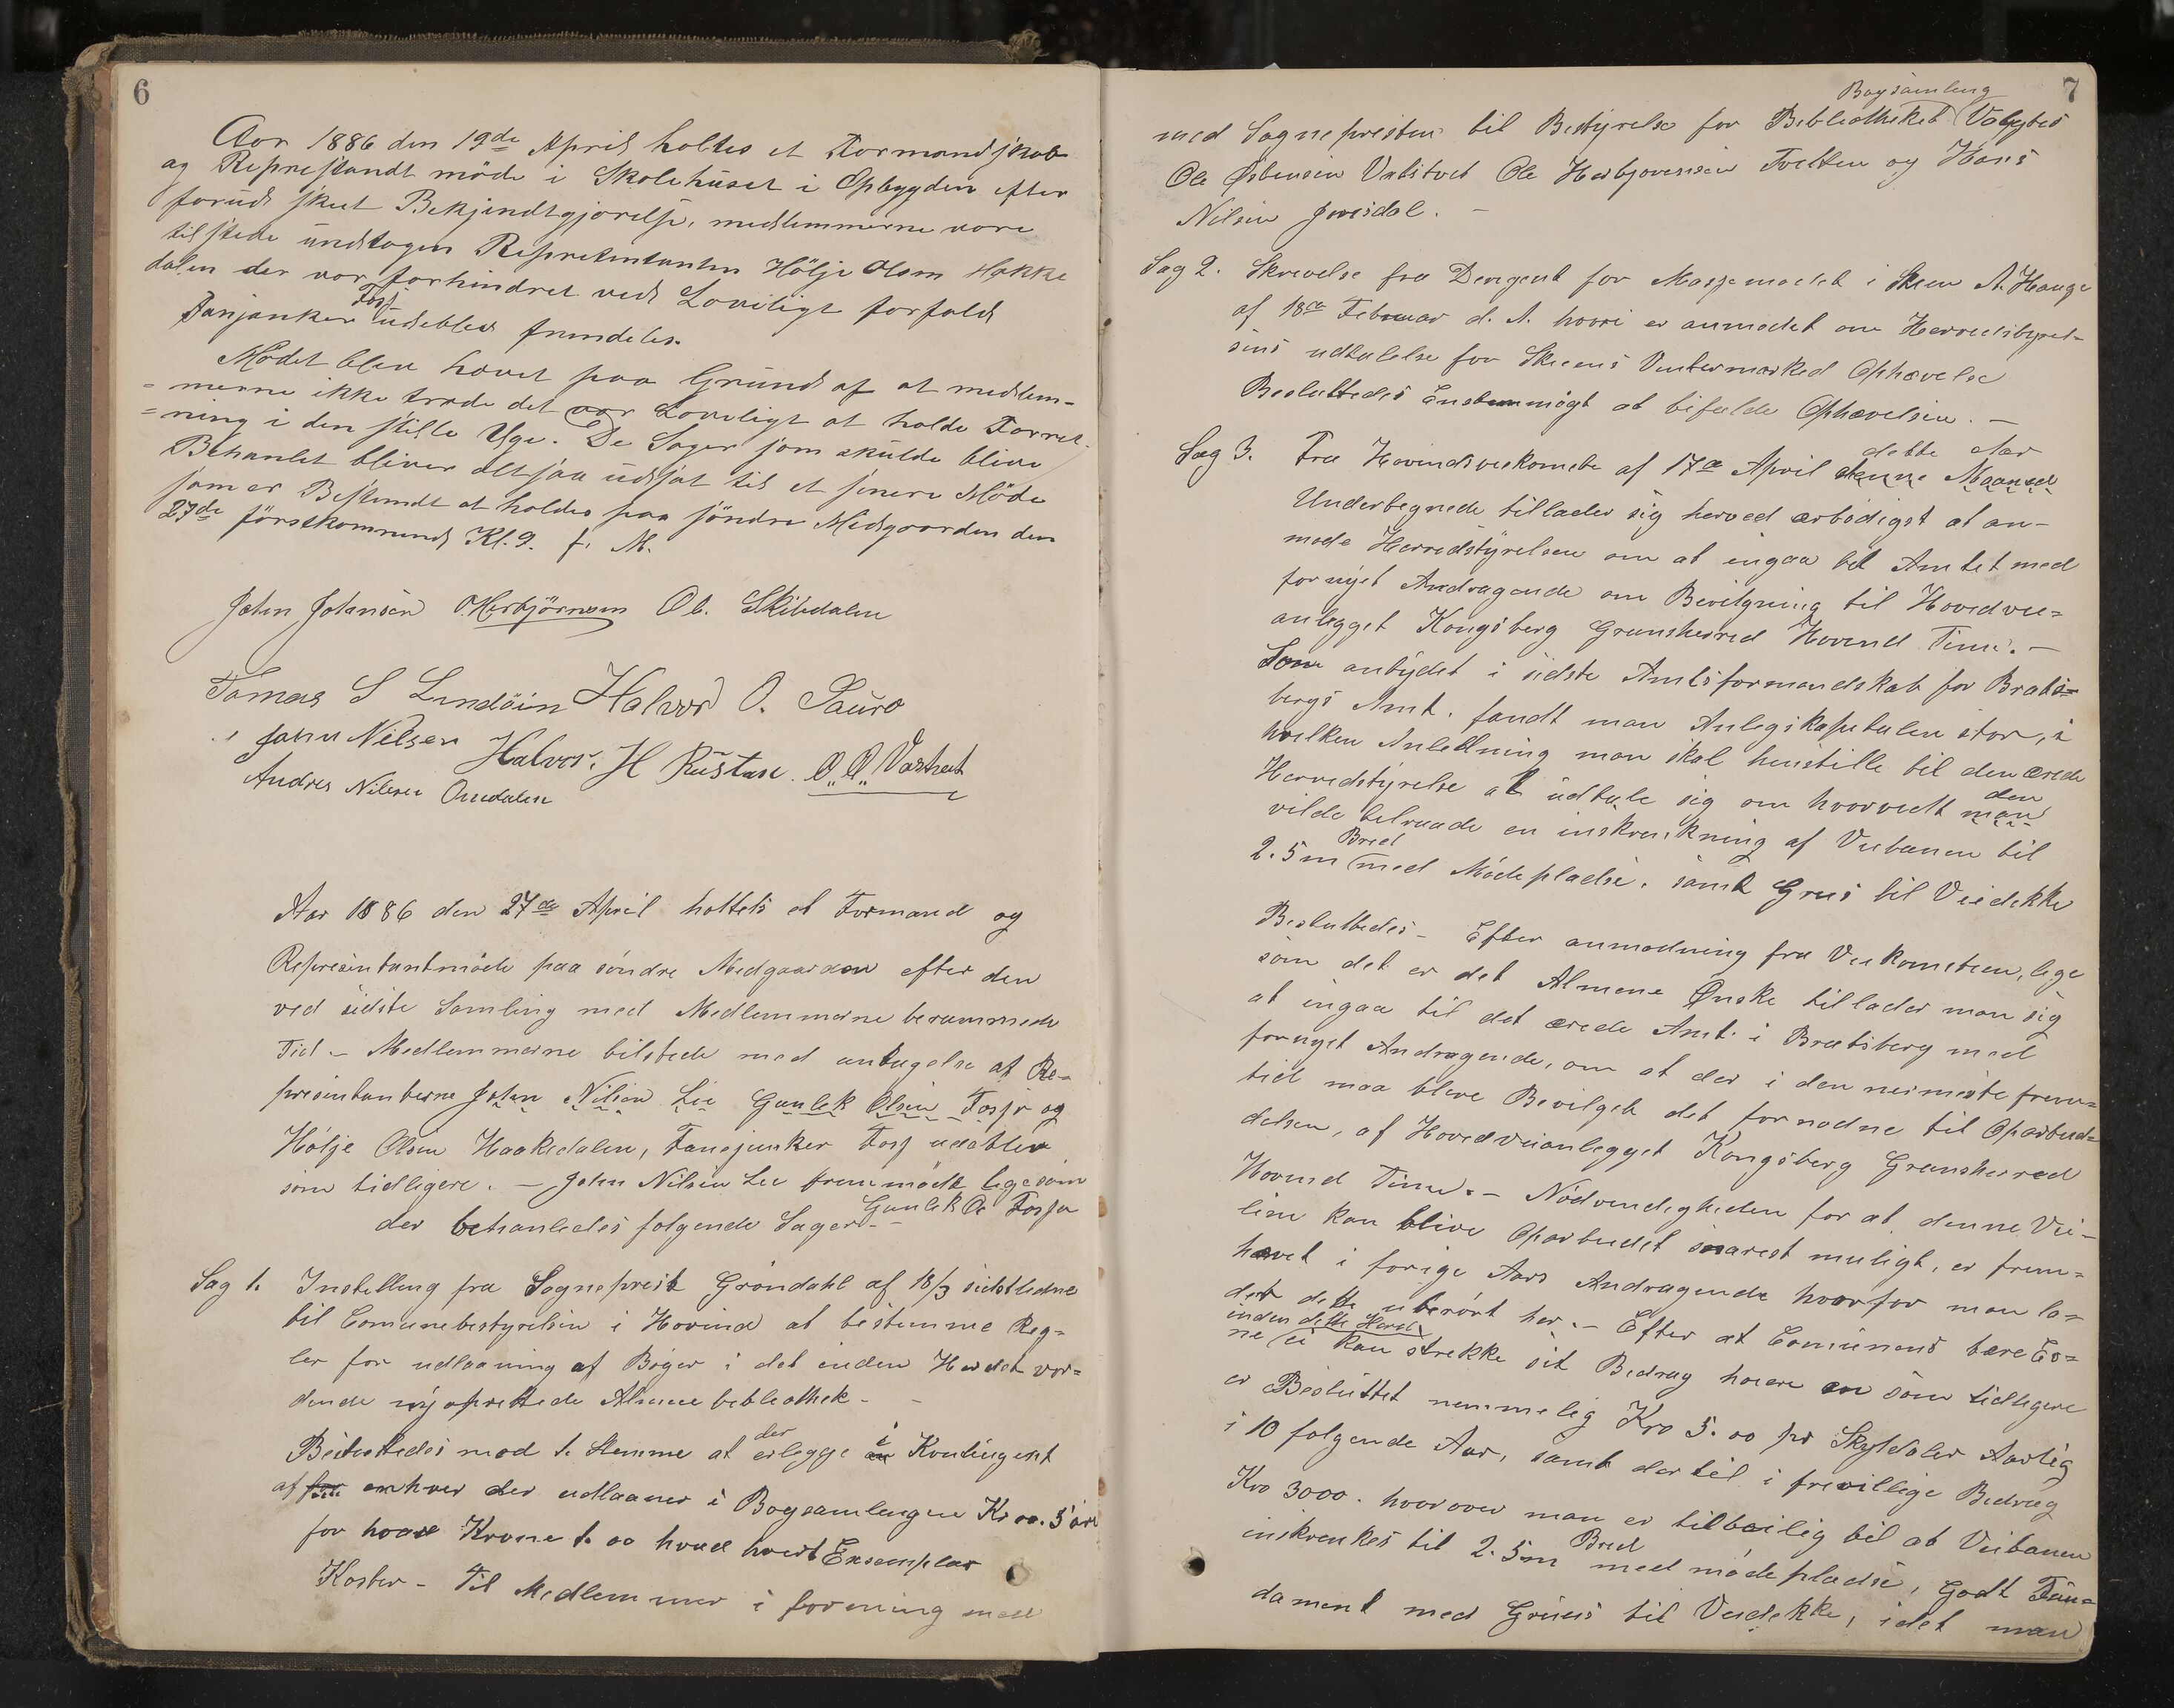 6
Aar 1886 den 19de April holtes et Formandskab
og Repræstandt möde i Skolehuset i Opbygden efter
forud skeet Bekjendtgjorelse, medlemmerne vare
tilstede undtagen Repretentanten Hölje Olsen Hakke
dalen der var forhindret ved Lovligt forfald
Fanjunker Fosj udeblev fremdeles.
Mödet blev hævet paa Grund af at medlem-
=merne ikke trode det var Lovligt at holde Forret-
=ning i den stille Uge. De Sager som skulde blive
Behanlet bliver altsaa udsat til et senere Möde
som er Bestemdt at holdes paa söndre Midgaarden den
27de förstkommend Kl. 9. f. M.
John Johansen O. Herbjörnsen Ol. Skibdalen
Tomas S Lundöin Halvor O. Sauro
John Nilsen Halvor. H Rustan. O. O. Vastveit
Andres Nilsen Omdalen
Aar 1886 den 27de April holtets et Formand og
Represintantmöde paa söndre Midgaarden efter den
ved sidste Samling med Medlemmerne berammede
Tid. – Medlemmerne tilstede med untagelse af Re-
presintanterne John Nilsen Lie Gunlek Olsen Fosse og
Hölje Olsen Haakedalen, Fanejunker Fosj udeblev
som tidligere. – John Nilsen Lie fremmödte ligesom
Gunlek O. Fosse
der behanledes folgende Sager. –
Sag 1. Instelling fra Sogneprest Gröndahl af 18/3 sidstledne
til Comunebestyrelsen i Hovind at bestemme Reg=
ler for udlaaning af Böger i det inden Herdet vor=
dende nyoprettede Almuebebliothek. –
Besluttedes mod 1. Stemme at der erlegges i Kontingent
af enhver der udlaaner i Bogsamlingen Kr 00. 5 öre
for hver Krone 1. 00 hvad hvert Exsemplar
Koster – Til Medlemmer i forening med
7
Bogsamling
med Sognepresten til Bestyrelse for Bebliotheket Valgtes
Ole Östensen Vatstvet Ole Herbjornsen Tveiten og Hans
Nilsen Jorisdal. –
Sag 2. Skrivelse fra Dirigent for Massemodet i Skien A. Hauge
af 18de Februar d. A. hvori er anmodet om Herredsbyrel-
sens udtalelse for Skiens Vintermarked Ophævelse
Besluttedes Enstemmigt at bifalde Ophævelsen. –
Sag 3. Fra Hovindsveikomite af 17de April denne Maaned
dette Aar
Undertegnede tillader sig herved ærbödigst at an-
mode Herredstyrelsen om at ingaa til Amtet med
fornyet Andragende om Bevilgning til Hovedvei=
anlegget Kongsberg Gransherred Hovind Tinn. –
Som antydet i sidste Amtsformandskab for Brats=
bergs Amt. fandt man Anlegskapitalen stor, i
hvilken Anledning man skal henstille til den ærede
Herredstyrelse at udtale sig om hvorvidt man
den
vilde tilraade en inskrenkning af Veibanen til
2.5 m Bred med Mödepladse. samt Grus til Veidekke
Besluttedes – Efter anmodning fra Veikomiteen, lige
som det er det Almene Önske tillader man sig
at ingaa til det ærede Amt i Bratsberg med
fornyet Andragende, om at der i den nermeste frem=
tid maa blive Bevilget det fornodne til Oparbeid=
delsen, af Hovedveianlegget Kongsberg Gransherred
Hovind Tinn. – Nödvendigheden for at denne Vei-
linie kan blive Oparbeidet snarest muligt, er frem=
hævet i forige Aars Andragende hvorfor man la=
der dette uberört her. – Efter at Comunens bære Ev=
inden dette Herred
ne ei kan strekke sit Bedrag höiere en som tidligere
er Besluttet nemmelig Kro 5. 00 pr Skylddaler Aarlig
i 10 folgende Aar, samt dertil i frivillige Bedrag
Kro 3000. hvorover man er tilböielig til at Veibanen
inskrenkes til 2.5 m Bred med mödepladse, Godt Fun=
dament med Gruus til Veidekke, idet man